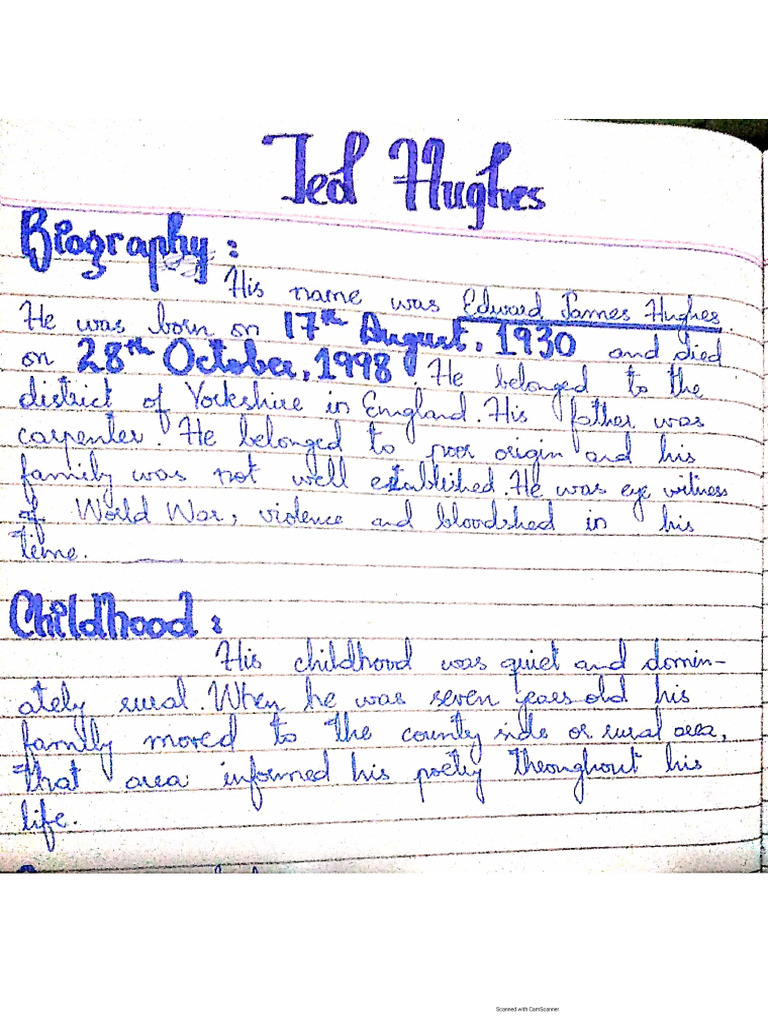 Ted Hughes
Biography:
His name was Edward James Hughes.
He was born on 17th August, 1930 and died
on 28th October, 1998. He belonged to the
district of Yorkshire in England. His father was
carpenter. He belonged to poor origin and his
family was not well established. He was eye witness
of World War, violence and bloodshed in his
time.
Childhood:
His childhood was quiet and domin-
ately rural. When he was seven years old his
family moved to the county side or rural area,
that area informed his poetry throughout his
life.
Scanned with CamScanner